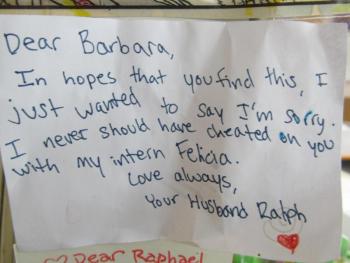 Dear Barbara,
In hopes that you find this, I
just wanted to say I'm sorry.
I never should have cheated on you
with my intern Felicia.
Love always,
Your Husband Ralph
Dear Raphael